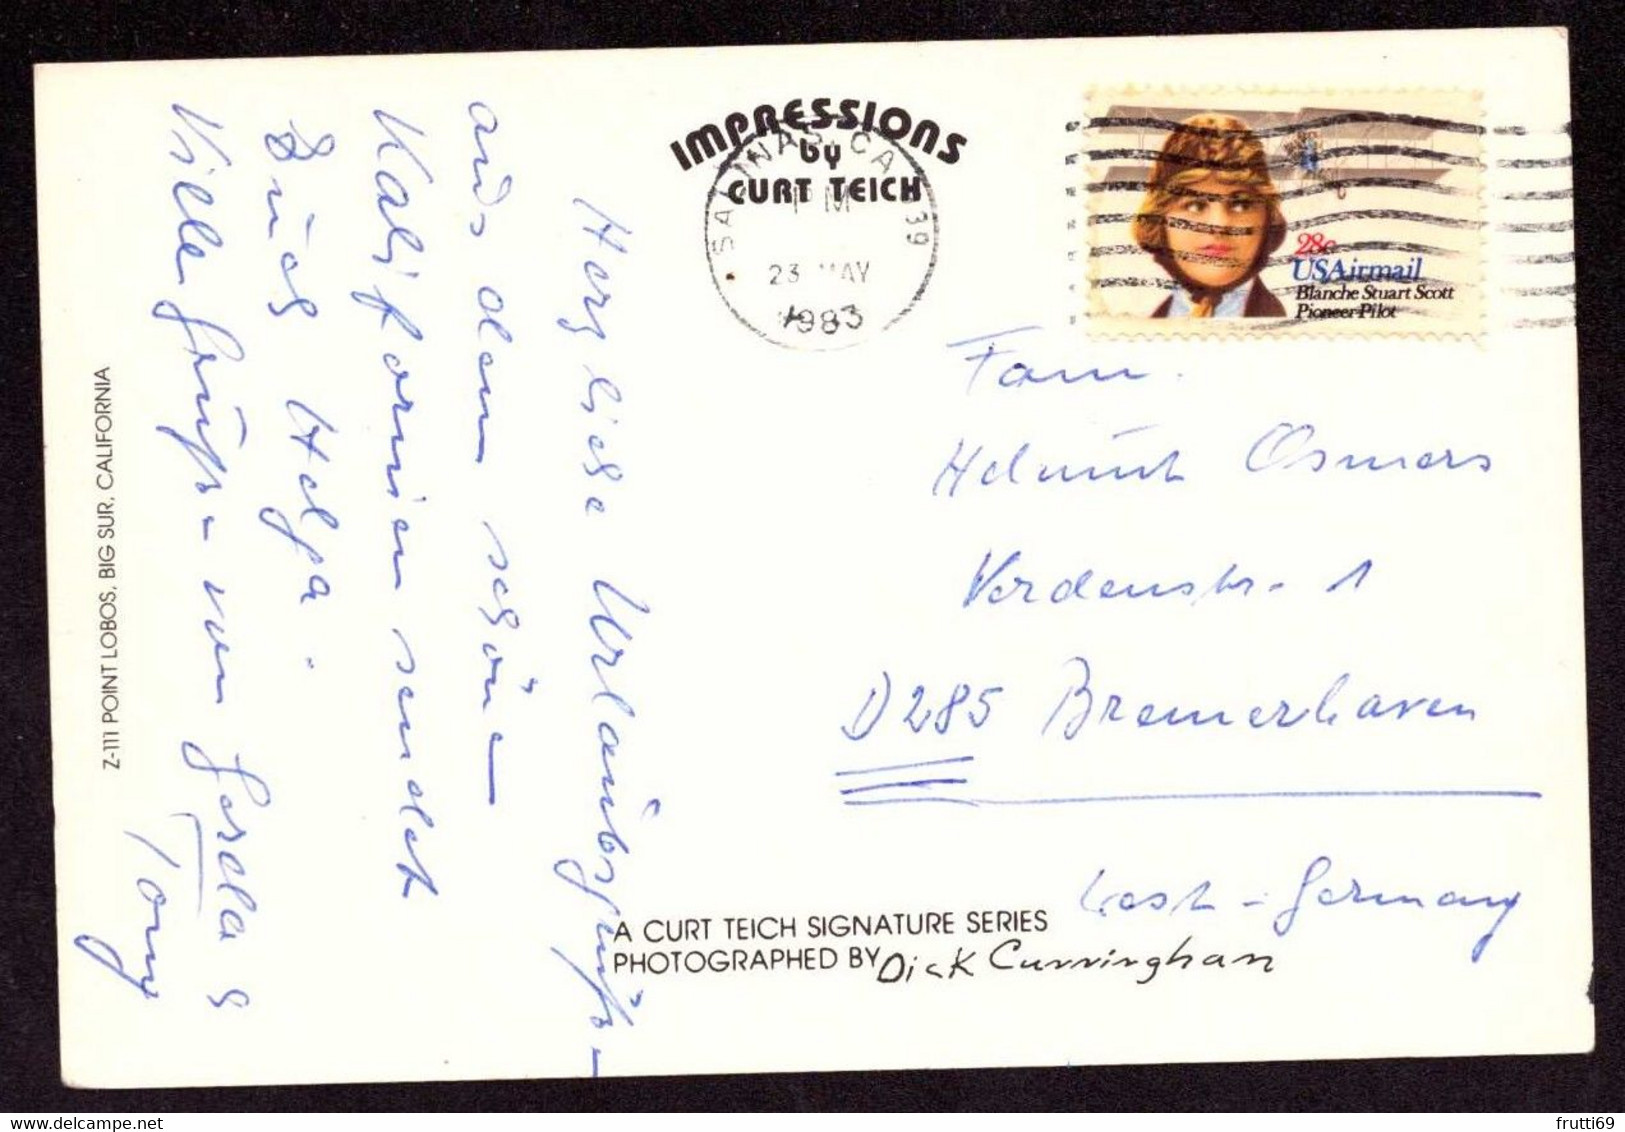 IMPRESSIONS
by
CURT TEICH
SALINAS, CA 939
PM
23 MAY
1983
28c
USAirmail
Blanche Stuart Scott
Pioneer Pilot
Herzliche Urlaubsgrüße
aus dem schönen
Kalifornien sendet
Euch Helga.
Viele Grüße von &
Tony
Fam.
Helmut Osmers
Verdenstr. 1
D 285 Bremerhaven
West-Germany
Z-111 POINT LOBOS, BIG SUR, CALIFORNIA
A CURT TEICH SIGNATURE SERIES
PHOTOGRAPHED BY Dick Cunningham
frutti69